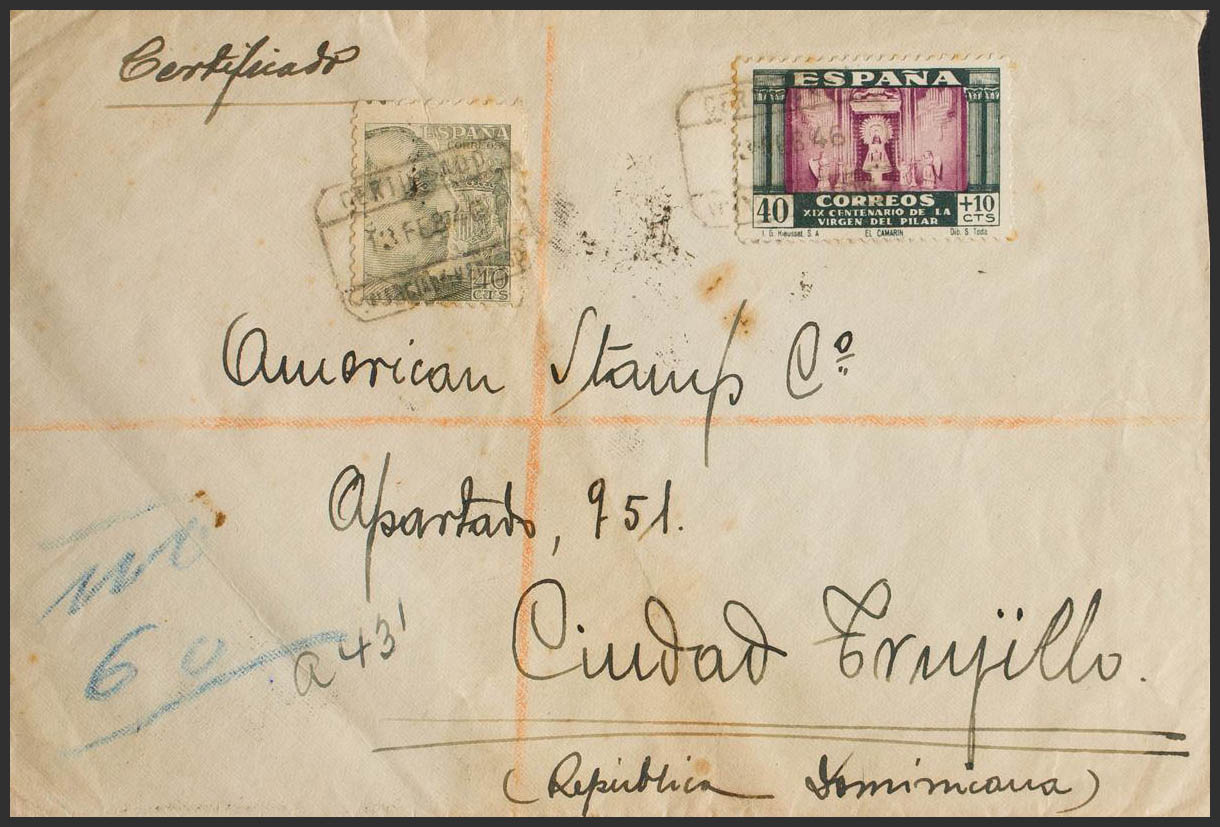 Certificado
ESPAÑA
CORREOS
40
CTS
CERTIFICADO
13 FEB 46
ESPAÑA
46
40
CORREOS
XIX CENTENARIO DE LA
VIRGEN DEL PILAR
+10
CTS
EL CAMARIN
Dib. S. Toda
American Stamp Cº
Apartado, 951.
60
a 43'
Ciudad Trujillo.
(República Dominicana)